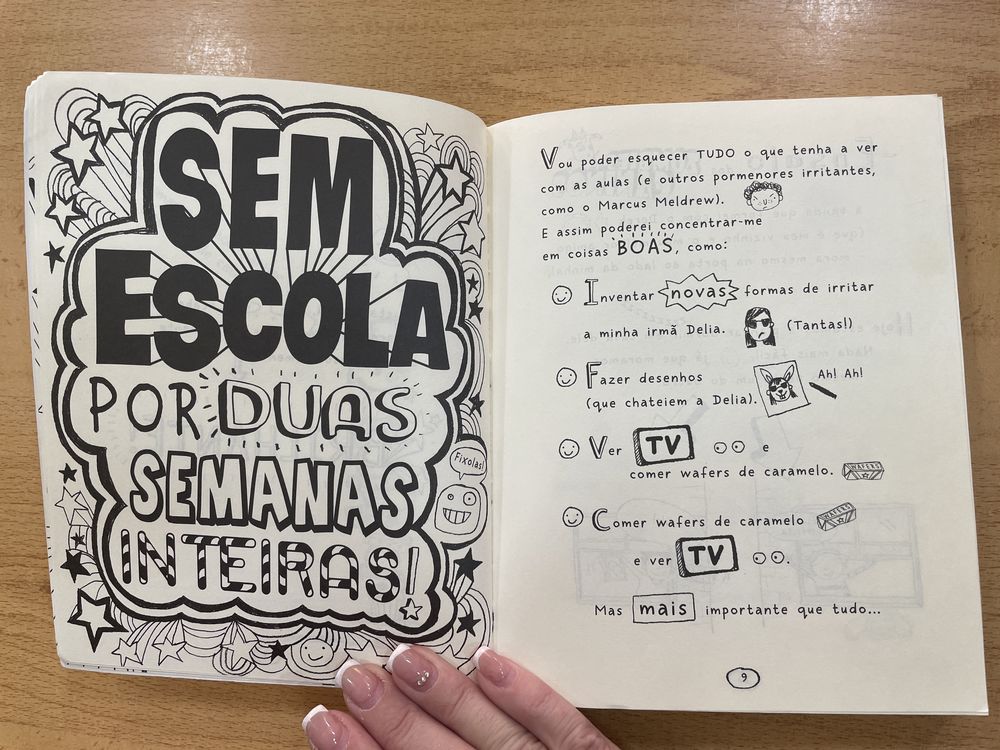 SEM
ESCOLA
POR DUAS
SEMANAS
INTEIRAS!
Fixolas!
Vou poder esquecer TUDO o que tenha a ver
com as aulas (e outros pormenores irritantes,
como o Marcus Meldrew).
E assim poderei concentrar-me
em coisas BOAS, como:
Inventar novas formas de irritar
a minha irmã Delia. (Tantas!)
Fazer desenhos Ah! Ah!
(que chateiem a Delia).
Ver TV e
comer wafers de caramelo. WAFERS
Comer wafers de caramelo WAFERS
e ver TV.
Mas mais importante que tudo...
9